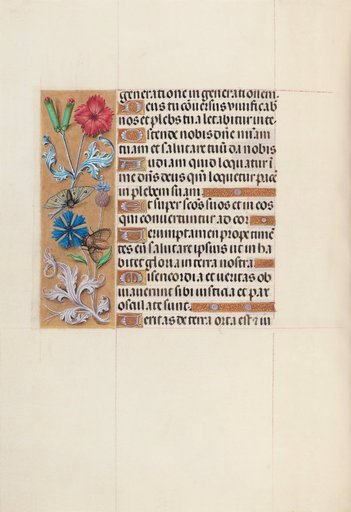 generatione in generationem.
Deus tu conversus vivificab
nos et plebs tua letabitur in te
Ostende nobis dñe miam
tuam et salutare tuū da nobis
Audiam quid loquatur ī
me dñs deus qm̄ loquetur pacē
in plebem suam.
Et super scōs suos et in eos
qui convertuntur ad cor
Verumptamen prope timē
tes eū salutare ipsius ut in ha
bitet gloria in terra nostra
Misericordia et veritas ob
viaverunt sibi iusticia et pax
osculate sunt.
Veritas de terra orta est et iu